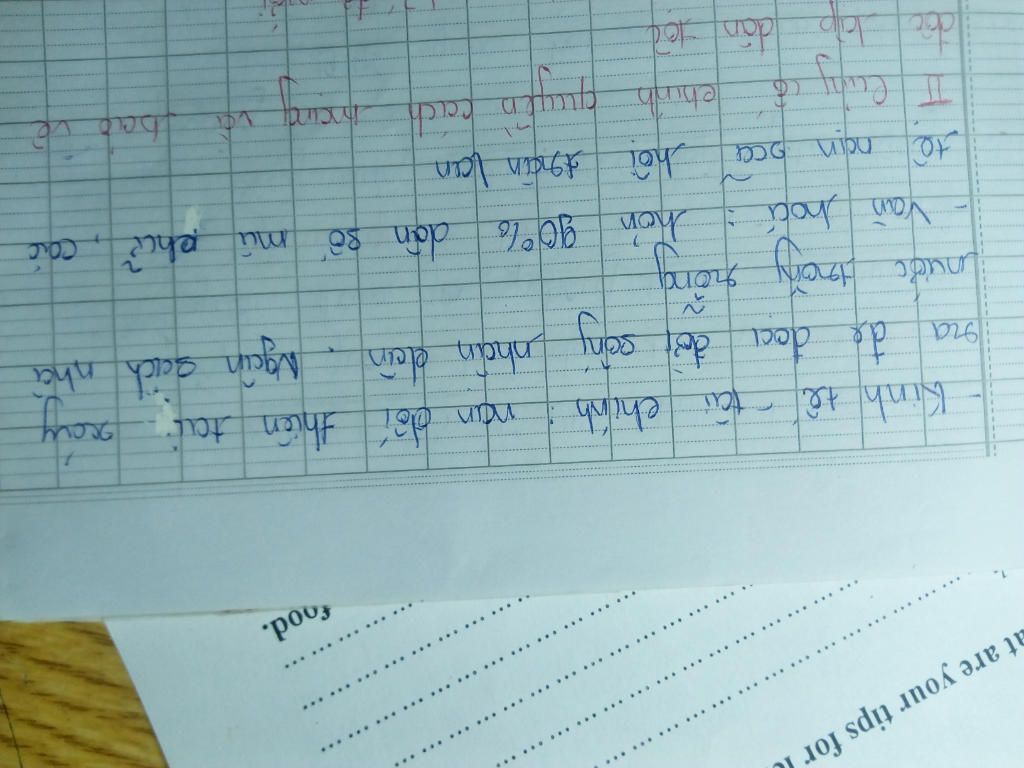 - Kinh tế - tài chính : nạn đói thiên tai xảy
ra đe doạ đời sống nhân dân . Ngân sách nhà
nước trống rỗng
- Văn hoá : hơn 90% dân số mù chữ, các
tệ nạn xã hội tràn lan
II Củng cố chính quyền cách mạng và bảo vệ
độc lập dân tộc
food.
at are your tips for